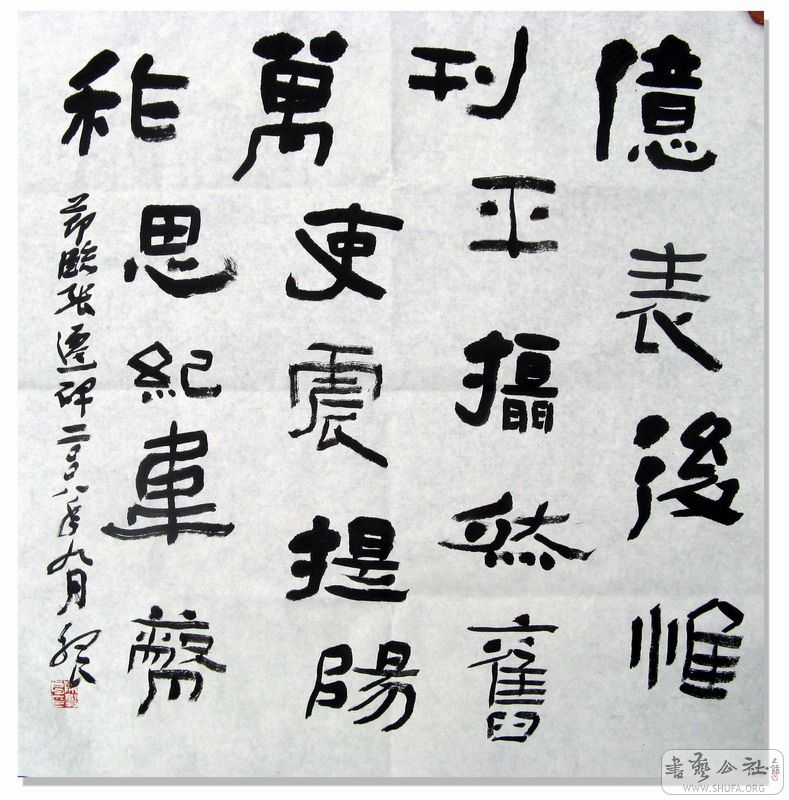 億表後惟
刊平攝然舊
萬吏震提陽
祚思紀韋
節臨張遷碑二〇〇八年九月
書藝公社
WWW.SHUFA.ORG